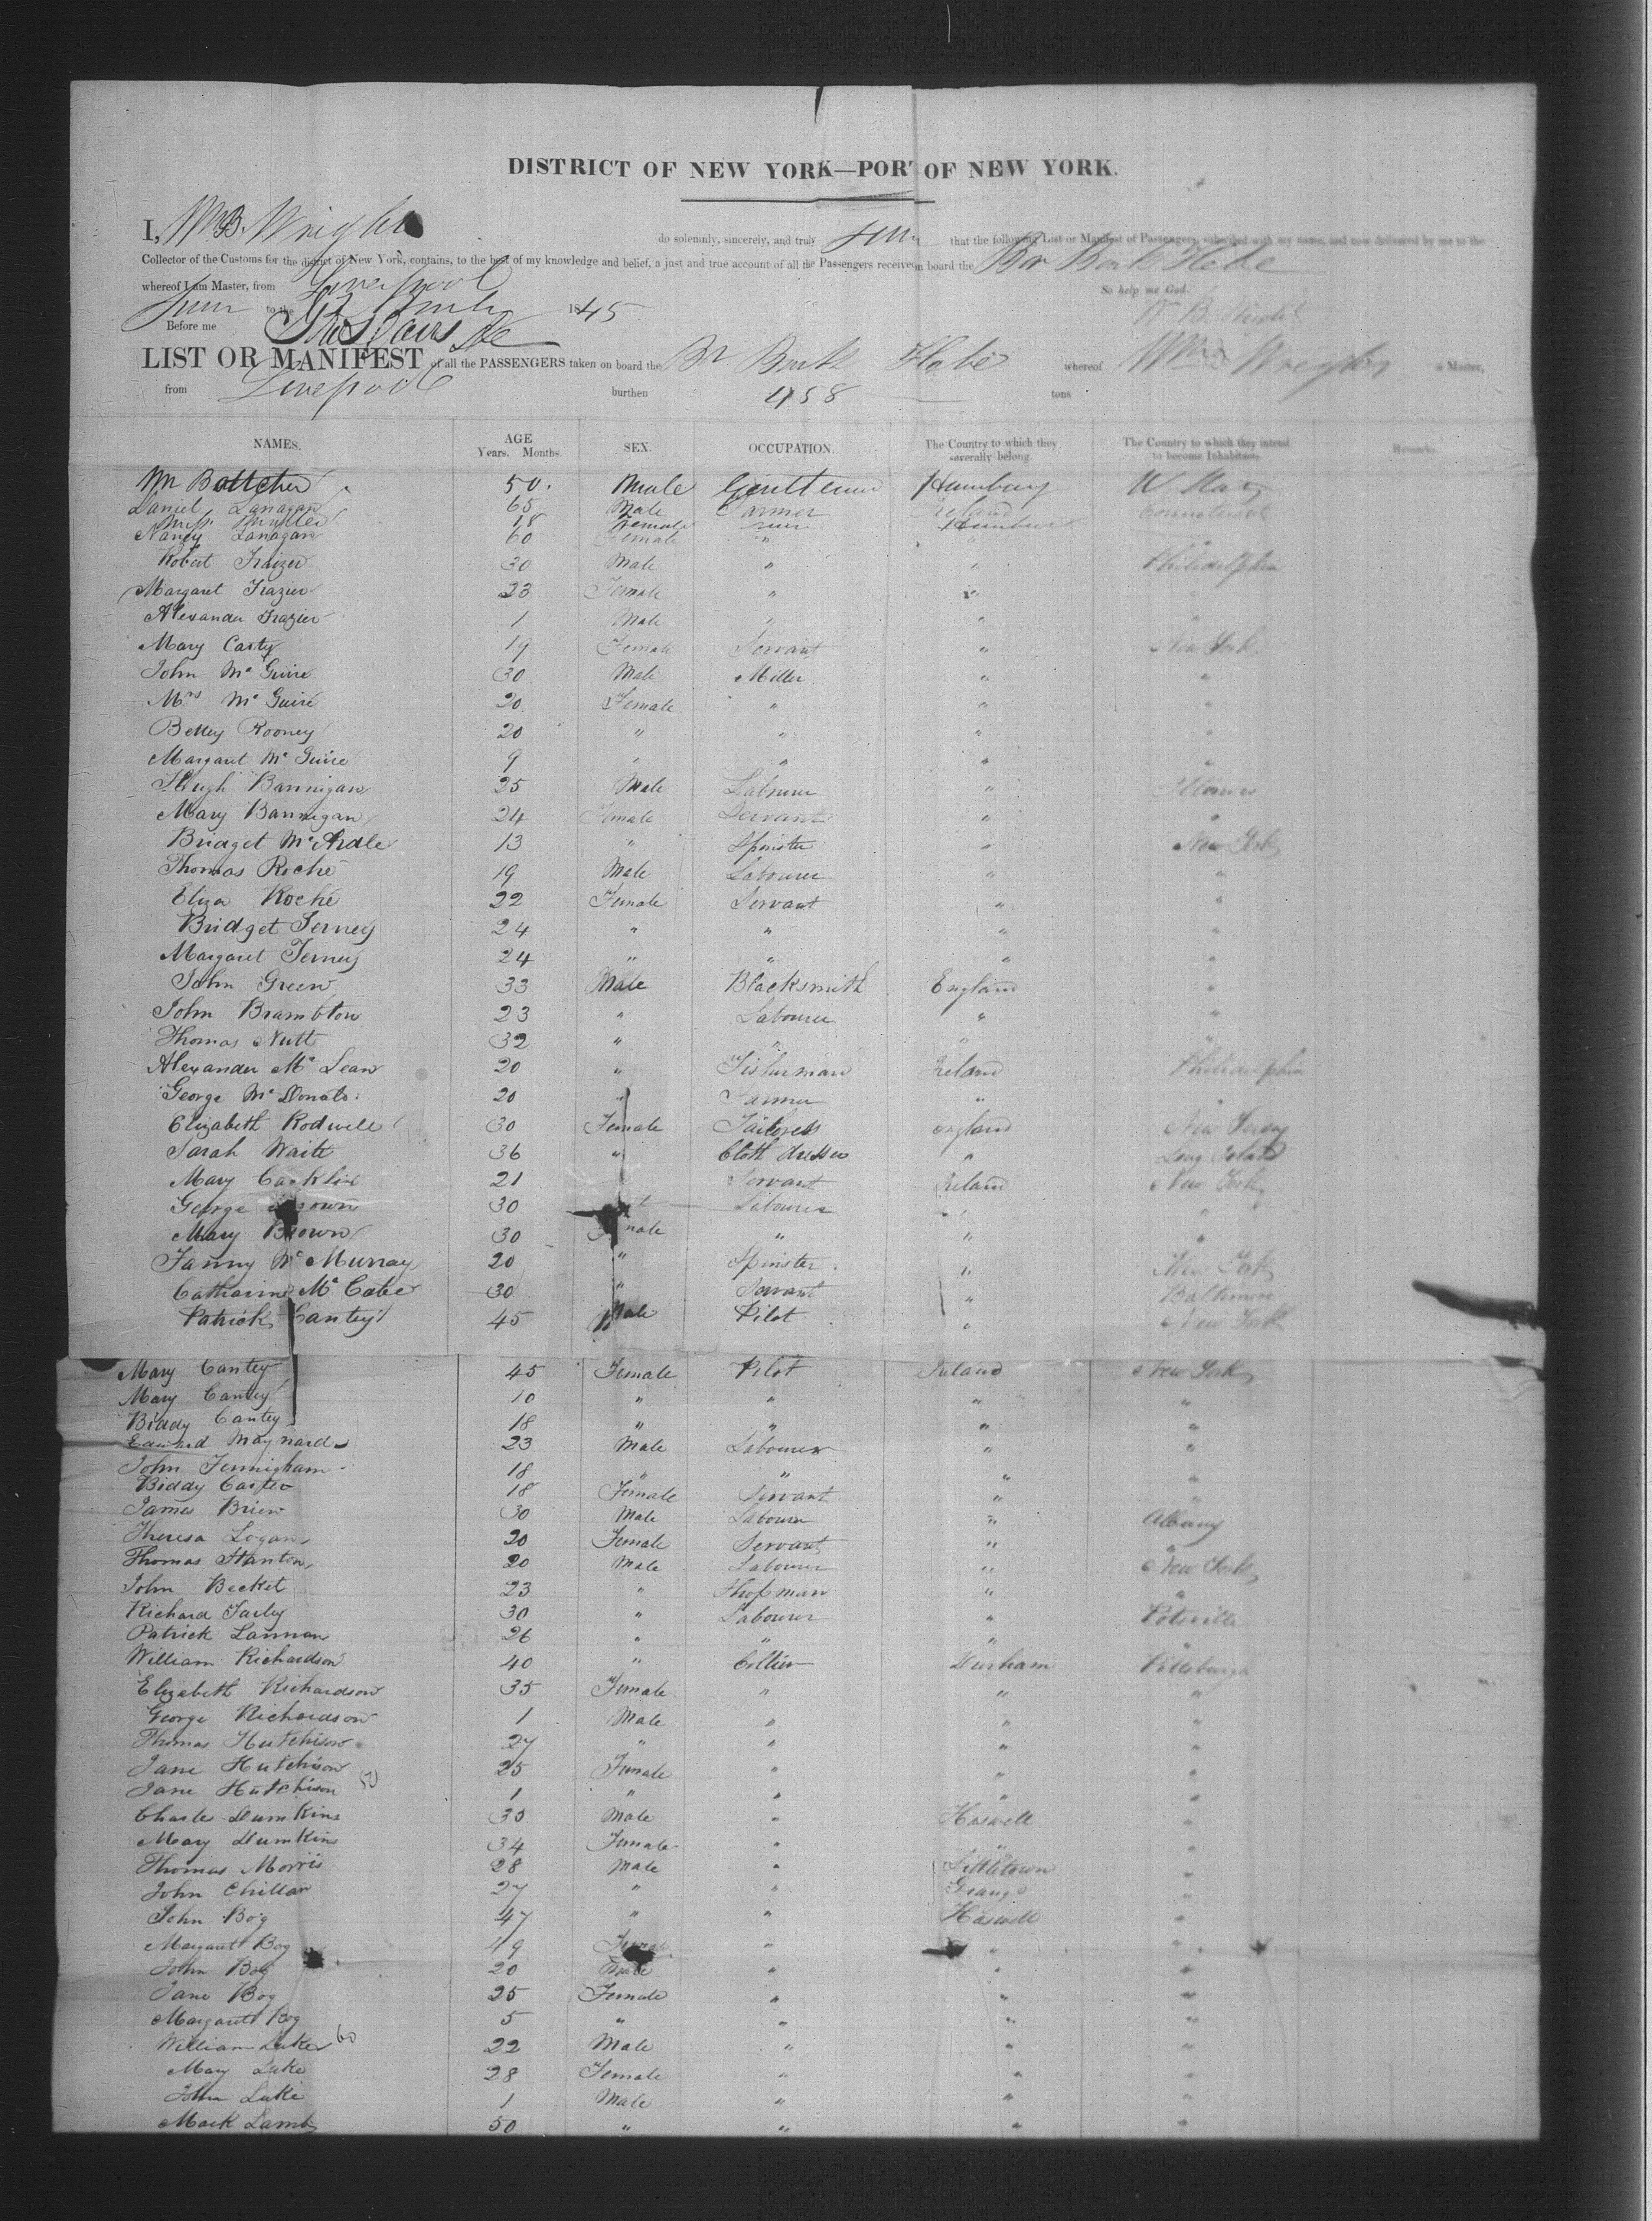 DISTRICT OF NEW YORK—PORT OF NEW YORK.
I, Wm B. Wright do solemnly, sincerely, and truly that the following List or Manifest of Passengers, subscribed with my name, and now delivered by me to the
Collector of the Customs for the district of New York, contains, to the best of my knowledge and belief, a just and true account of all the Passengers received on board the Br Bark Hebe
whereof I am Master, from Liverpool
So help me God.
to the 1845
W B. Wright
Before me
LIST OR MANIFEST of all the PASSENGERS taken on board the Br Bark Hebe whereof Wm B Wright is Master,
from Liverpool burthen 458 tons
NAMES. AGE Years. Months. SEX. OCCUPATION. The Country to which they severally belong. The Country to which they intend to become Inhabitants. Remarks.
Mr Bottcher 50 Male Gentleman Hamburg
Daniel Lanagan 65 Male Farmer Ireland Connecticut
Miss Muller 18 Female
Nancy Lanagan 60 Female " "
Robert Fraizer 30 Male " " Philidelphia
Margaret Frazier 23 Female " "
Alexander Frazier 1 Male " " "
Mary Casty 19 Female Servant " New York
John Mc Guire 30 Male Miller " "
Mrs Mc Guire 20 Female " " "
Betty Rooney 20 " " " "
Margaret Mc Guire 9 " " " "
Hugh Bannigan 25 Male Labourer " Illinois
Mary Bannigan 24 Female Servant " "
Bridget Mc Ardle 13 " Spinster " New York
Thomas Roche 19 Male Labourer " "
Eliza Roche 22 Female Servant " "
Bridget Terney 24 " " " "
Margaret Terney 24 " " " "
John Green 33 Male Blacksmith England "
John Brambton 23 " Labourer " "
Thomas Nutt 32 " " " "
Alexander Mc Lean 20 " Fisherman Ireland Philidelphia
George Mc Donald 20 " Farmer " "
Elizabeth Rodwell 30 Female Tailoress England New Jersey
Sarah Waite 36 " Cloth dresser " Long Island
Mary Cacklin 21 Servant Ireland New York
George Brown 30 Labourer " "
Mary Brown 30 Female " " "
Fanny Mc Murray 20 " Spinster " New York
Catharine Mc Cabe 30 " Servant " Baltimore
Patrick Cantey 45 Male Pilot " New York
Mary Cantey 45 Female Pilot Ireland New York
Mary Cantey 10 " " " "
Biddy Cantey 18 " " " "
Edward Maynard 23 Male Labourer " "
John Jennigham 18 " " " "
Biddy Carter 18 Female Servant " "
James Brien 30 Male Labourer " Albany
Theresa Logan 20 Female Servant " "
Thomas Stanton 20 Male Labourer " New York
John Becket 23 " Shopman " "
Richard Tarly 30 " Labourer " Potsville
Patrick Lannan 26 " " " "
William Richardson 40 " Collier Durham Pittsburgh
Elizabeth Richardson 35 Female " " "
George Richardson 1 Male " " "
Thomas Hutchison 27 " " " "
Jane Hutchison 25 Female " " "
50
Jane Hutchison 1 " " " "
Charles Dumkins 35 Male " Haswell "
Mary Dumkins 34 Female " " "
Thomas Morris 28 Male " Littletown "
John Chillar 27 " " Grange "
John Bog 47 " " Haswell "
Margarett Bog 49 Female " " "
John Bog 20 Male " " "
Jane Bog 25 Female " " "
Margarett Bog 5 " " " "
William Luke 60 22 Male " " "
Mary Luke 28 Female " " "
John Luke 1 Male " " "
Mark Lamb 50 " " " "